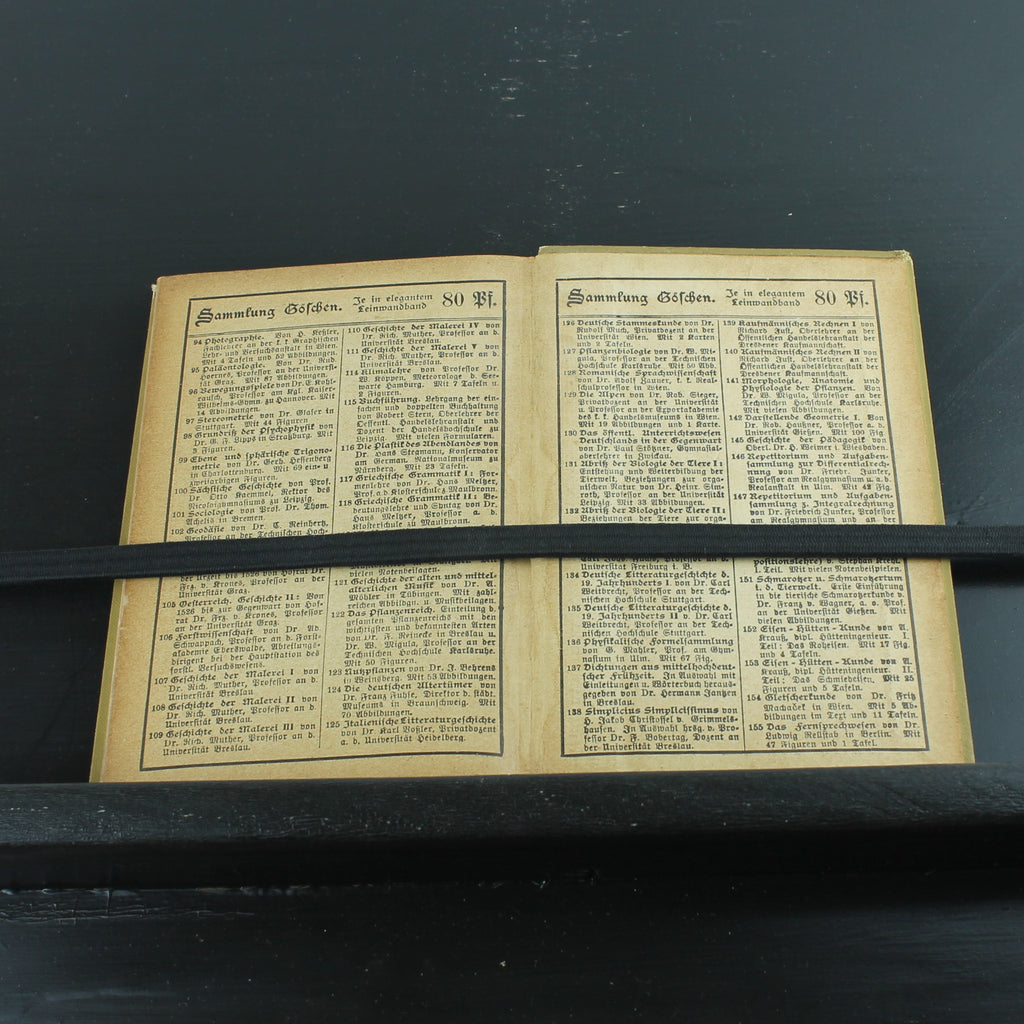 Sammlung Göschen. Je in elegantem Leinwandband 80 Pf.
94 Photographie. Von H. Keßler,
Professor an der k. k. Graphischen
Lehr- und Versuchsanstalt in Wien.
Mit 4 Tafeln und 52 Abbildungen.
95 Paläontologie. Von Dr. Rud.
Hoernes, Professor an der Universi-
tät Graz. Mit 87 Abbildungen.
96 Bewegungsspiele von Dr. E. Kohl-
rausch, Professor am Kgl. Kaiser-
Wilhelms-Gymn. zu Hannover. Mit
14 Abbildungen.
97 Stereometrie von Dr. Glaser in
Stuttgart. Mit 44 Figuren.
98 Grundriß der Psychophysik von
Dr. G. F. Lipps in Straßburg. Mit
3 Figuren.
99 Ebene und sphärische Trigono-
metrie von Dr. Gerh. Hessenberg
in Charlottenburg. Mit 69 ein- u.
zweifarbigen Figuren.
100 Sächsische Geschichte von Prof.
Dr. Otto Kaemmel, Rektor des
Nicolaigymnasiums zu Leipzig.
101 Sociologie von Prof. Dr. Thom.
Achelis in Bremen.
102 Geodäsie von Dr. C. Reinhertz,
Professor an der Technischen Hoch-
der Urzeit bis 1526 von Hofrat Dr.
Frz. v. Krones, Professor an der
Universität Graz.
105 Oesterreich. Geschichte II: Von
1526 bis zur Gegenwart von Hof-
rat Dr. Frz. v. Krones, Professor
an der Universität Graz.
106 Forstwissenschaft von Dr. Ad.
Schwappach, Professor an d. Forst-
akademie Eberswalde, Abteilungs-
dirigent bei der Hauptstation des
forstl. Versuchswesens.
107 Geschichte der Malerei I von
Dr. Rich. Muther, Professor an d.
Universität Breslau.
108 Geschichte der Malerei II von
Dr. Rich. Muther, Professor an d.
Universität Breslau.
109 Geschichte der Malerei III von
Dr. Rich. Muther, Professor an d.
Universität Breslau.
110 Geschichte der Malerei IV von
Dr. Rich. Muther, Professor an d.
Universität Breslau.
111 Geschichte der Malerei V von
Dr. Rich. Muther, Professor an d.
Universität Breslau.
114 Klimalehre von Professor Dr.
W. Köppen, Meteorologe d. See-
warte Hamburg. Mit 7 Tafeln u.
2 Figuren.
115 Buchführung. Lehrgang der ein-
fachen und doppelten Buchhaltung
von Robert Stern, Oberlehrer der
Öffentl. Handelslehranstalt und
Dozent der Handelshochschule zu
Leipzig. Mit vielen Formularen.
116 Die Plastik des Abendlandes von
Dr. Hans Stegmann, Konservator
am German. Nationalmuseum zu
Nürnberg. Mit 23 Tafeln.
117 Griechische Grammatik I: For-
menlehre von Dr. Hans Meltzer,
Prof. a. d. Klosterschule z. Maulbronn.
118 Griechische Grammatik II: Be-
deutungslehre und Syntax von Dr.
Hans Meltzer, Professor a. d.
Klosterschule zu Maulbronn.
vielen Notenbeilagen.
121 Geschichte der alten und mittel-
alterlichen Musik von Dr. A.
Möhler in Tübingen. Mit zahl-
reichen Abbildgn. u. Musikbeilagen.
122 Das Pflanzenreich. Einteilung d.
gesamten Pflanzenreichs mit den
wichtigsten und bekanntesten Arten
von Dr. F. Reinecke in Breslau u.
Dr. W. Migula, Professor an der
Technischen Hochschule Karlsruhe.
Mit 50 Figuren.
123 Nutzpflanzen von Dr. J. Behrens
in Weinsberg. Mit 53 Abbildungen.
124 Die deutschen Altertümer von
Dr. Franz Fuhse, Direktor d. städt.
Museums in Braunschweig. Mit
70 Abbildungen.
125 Italienische Litteraturgeschichte
von Dr. Karl Voßler, Privatdozent
a. d. Universität Heidelberg.
Sammlung Göschen. Je in elegantem Leinwandband 80 Pf.
126 Deutsche Stammeskunde von Dr.
Rudolf Much, Privatdozent an der
Universität Wien. Mit 2 Karten
und 2 Tafeln.
127 Pflanzenbiologie von Dr. W. Mi-
gula, Professor an der Technischen
Hochschule Karlsruhe. Mit 50 Abb.
128 Romanische Sprachwissenschaft
von Dr. Adolf Zauner, k. k. Real-
schulprofessor in Wien.
129 Die Alpen von Dr. Rob. Sieger,
Privatdozent an der Universität
u. Professor an der Exportakademie
des k. k. Handelsmuseums in Wien.
Mit 19 Abbildungen und 1 Karte.
130 Das öffentl. Unterrichtswesen
Deutschlands in der Gegenwart
von Dr. Paul Stötzner, Gymnasial-
oberlehrer in Zwickau.
131 Abriß der Biologie der Tiere I:
Entstehung und Weiterbildung der
Tierwelt, Beziehungen zur orga-
nischen Natur von Dr. Heinr. Sim-
roth, Professor an der Universität
Leipzig. Mit 33 Abbildungen.
132 Abriß der Biologie der Tiere II:
Beziehungen der Tiere zur orga-
Universität Freiburg i. B.
134 Deutsche Litteraturgeschichte d.
19. Jahrhunderts I von Dr. Carl
Weitbrecht, Professor an der Tech-
nischen Hochschule Stuttgart.
135 Deutsche Litteraturgeschichte d.
19. Jahrhunderts II v. Dr. Carl
Weitbrecht, Professor an der Tech-
nischen Hochschule Stuttgart.
136 Physikalische Formelsammlung
von G. Mahler, Prof. am Gym-
nasium in Ulm. Mit 67 Fig.
137 Dichtungen aus mittelhochdeut-
scher Frühzeit. In Auswahl mit
Einleitungen u. Wörterbuch heraus-
gegeben von Dr. Hermann Jantzen
in Breslau.
138 Simplicius Simplicissimus von
H. Jakob Christoffel v. Grimmels-
hausen. In Auswahl hrsg. v. Pro-
fessor Dr. F. Bobertag, Dozent an
der Universität Breslau.
139 Kaufmännisches Rechnen I von
Richard Just, Oberlehrer an der
Öffentlichen Handelslehranstalt der
Dresdener Kaufmannschaft.
140 Kaufmännisches Rechnen II von
Richard Just, Oberlehrer an der
Öffentlichen Handelslehranstalt der
Dresdener Kaufmannschaft.
141 Morphologie, Anatomie und
Physiologie der Pflanzen. Von
Dr. W. Migula, Professor an der
Technischen Hochschule Karlsruhe.
Mit vielen Abbildungen.
142 Darstellende Geometrie I. Von
Dr. Rob. Haußner, Professor a. d.
Universität Gießen. Mit 100 Fig.
145 Geschichte der Pädagogik von
Oberl. Dr. H. Weimer i. Wiesbaden.
146 Repetitorium und Aufgaben-
sammlung zur Differentialrech-
nung von Dr. Friedr. Junker,
Professor am Realgymnasium u. a. d.
Realanstalt in Ulm. Mit 42 Fig.
147 Repetitorium und Aufgaben-
sammlung z. Integralrechnung
von Dr. Friedrich Junker, Professor
am Realgymnasium und an der
positionslehre) v. Stephan Krehl.
I. Teil. Mit vielen Notenbeispielen.
151 Schmarotzer u. Schmarotzertum
i. d. Tierwelt. Erste Einführung
in die tierische Schmarotzerkunde v.
Dr. Franz v. Wagner, a. o. Prof.
an der Universität Gießen. Mit
vielen Abbildungen.
152 Eisen-Hütten-Kunde von A.
Krauß, dipl. Hütteningenieur. I.
Teil: Das Roheisen. Mit 17 Fig.
und 4 Tafeln.
153 Eisen-Hütten-Kunde von A.
Krauß, dipl. Hütteningenieur. II.
Teil: Das Schmiedeisen. Mit 25
Figuren und 5 Tafeln.
154 Gletscherkunde von Dr. Fritz
Machaček in Wien. Mit 5 Ab-
bildungen im Text und 11 Tafeln.
155 Das Fernsprechwesen von Dr.
Ludwig Rellstab in Berlin. Mit
47 Figuren und 1 Tafel.